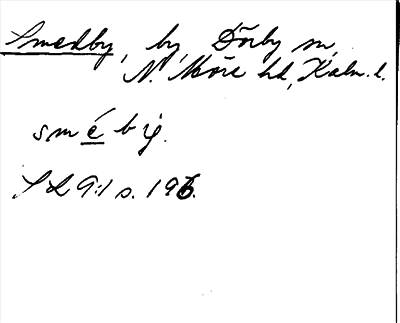 Smedby, by, Dörby sn,
N. Möre hd, Kalm. l.
smébi̯.
SL 9:1 s. 196.